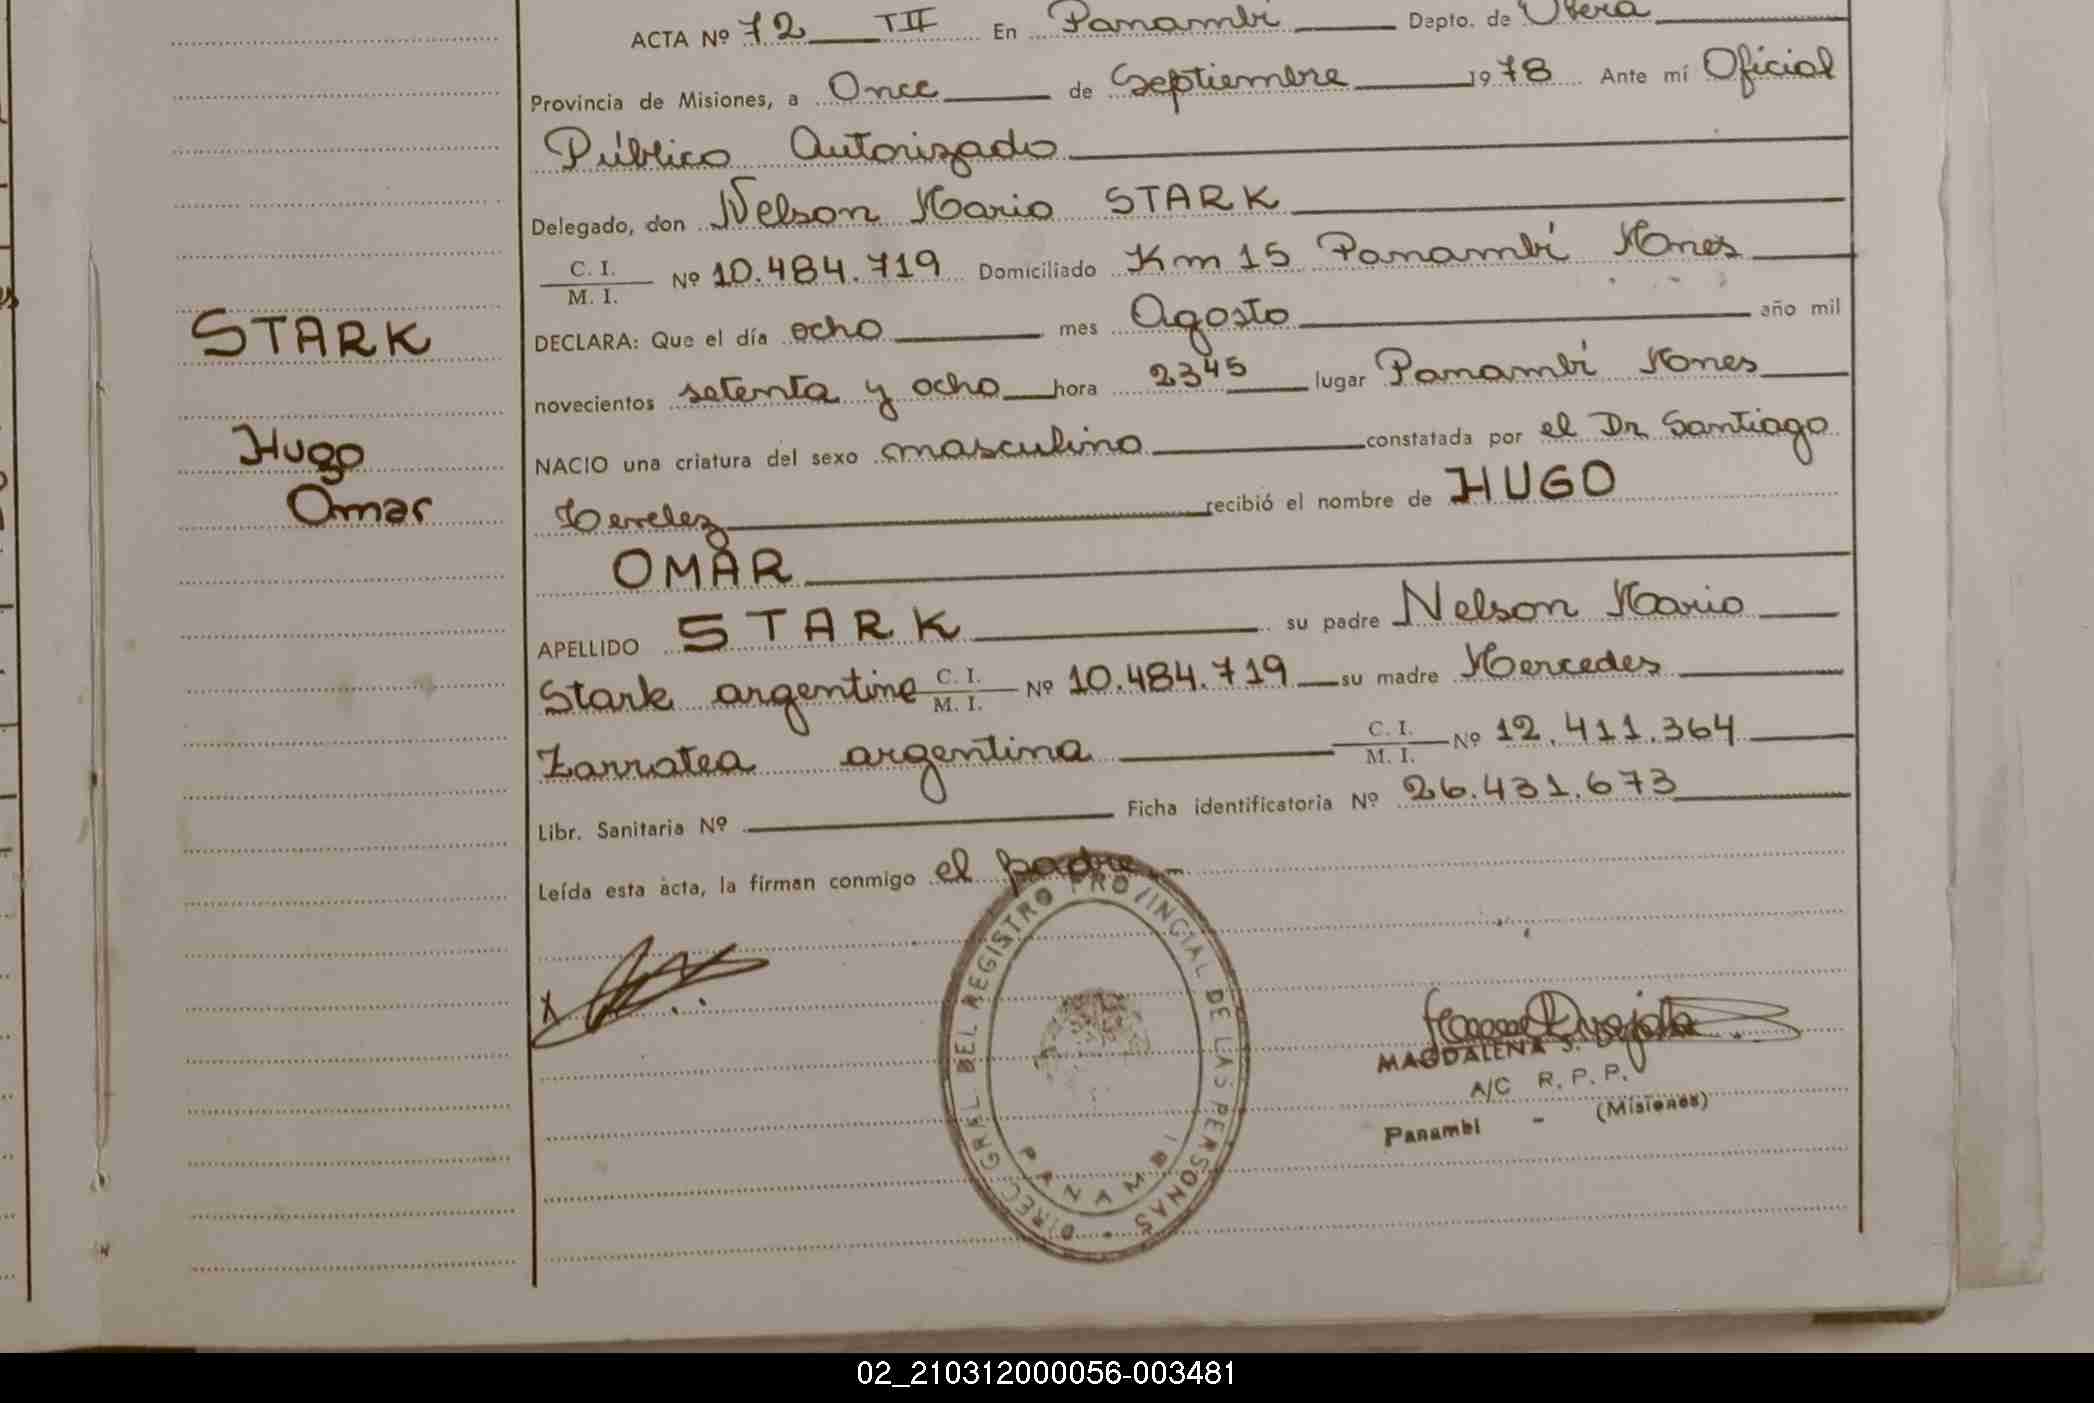 ACTA Nº 72 TII En Panambí Depto. de Oberá
Provincia de Misiones, a Once de Septiembre 1978 Ante mí Oficial
Público Autorizado
Delegado, don Nelson Mario STARK
C. I.
M. I. Nº 10.484.719 Domiciliado Km 15 Panambí Mnes
DECLARA: Que el día ocho mes Agosto año mil
novecientos setenta y ocho hora 2345 lugar Panambí Mnes
NACIO una criatura del sexo masculino constatada por el Dr Santiago
recibió el nombre de HUGO
OMAR
APELLIDO STARK su padre Nelson Mario
Stark argentino C. I. M. I. Nº 10.484.719 su madre Mercedes
Zarratea argentina C. I. M. I. Nº 12.411.364
Libr. Sanitaria Nº Ficha identificatoria Nº 26.431.673
Leída esta acta, la firman conmigo el padre.-
STARK
Hugo
Omar
DIREC. GRAL. DEL REGISTRO PROVINCIAL DE LAS PERSONAS
PANAMBI
MAGDALENA S.
A/C R. P. P.
Panambí - (Misiones)
02_210312000056-003481